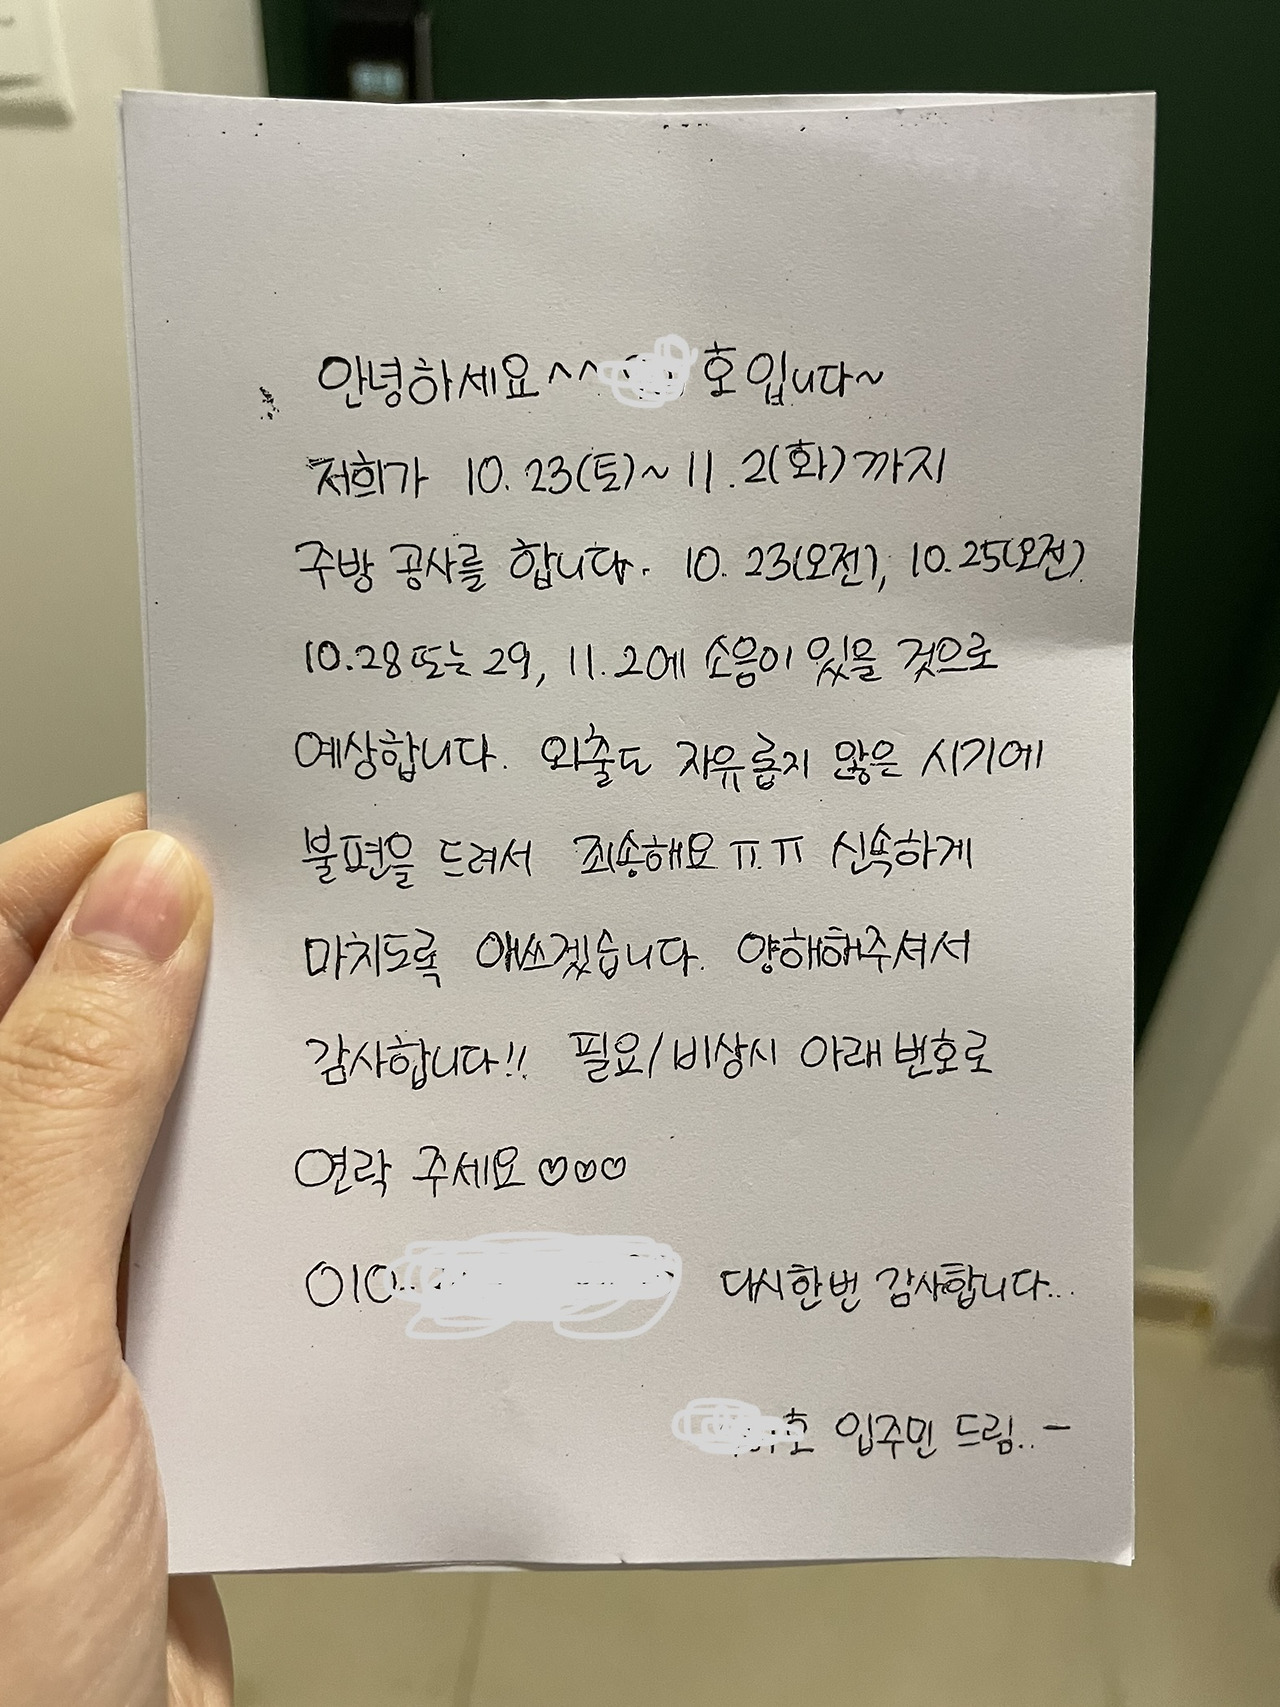 안녕하세요^^ 호입니다~
저희가 10.23(토)~11.2(화)까지
주방 공사를 합니다. 10.23(오전), 10.25(오전)
10.28 또는 29, 11.2에 소음이 있을 것으로
예상합니다. 외출도 자유롭지 않은 시기에
불편을 드려서 죄송해요ㅠ.ㅠ 신속하게
마치도록 애쓰겠습니다. 양해해주셔서
감사합니다!! 필요/비상시 아래 번호로
연락 주세요♡♡♡
010 다시한번 감사합니다...
호 입주민 드림..-